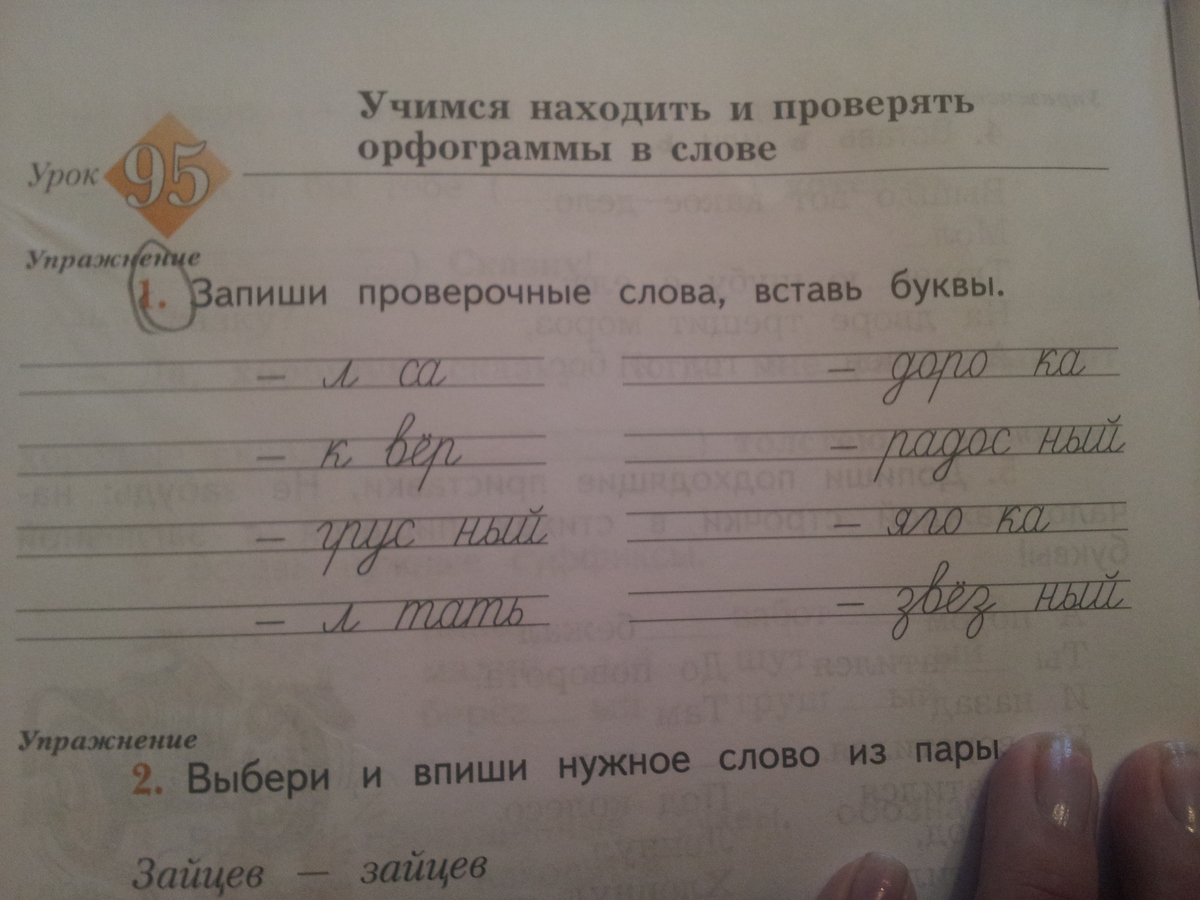 Учимся находить и проверять
орфограммы в слове
Урок 95
Упражнение
1. Запиши проверочные слова, вставь буквы.
— л са — доро ка
— к вёр — радос ный
— грус ный — яго ка
— л тать — звёз ный
Упражнение
2. Выбери и впиши нужное слово из пары.
Зайцев — зайцев